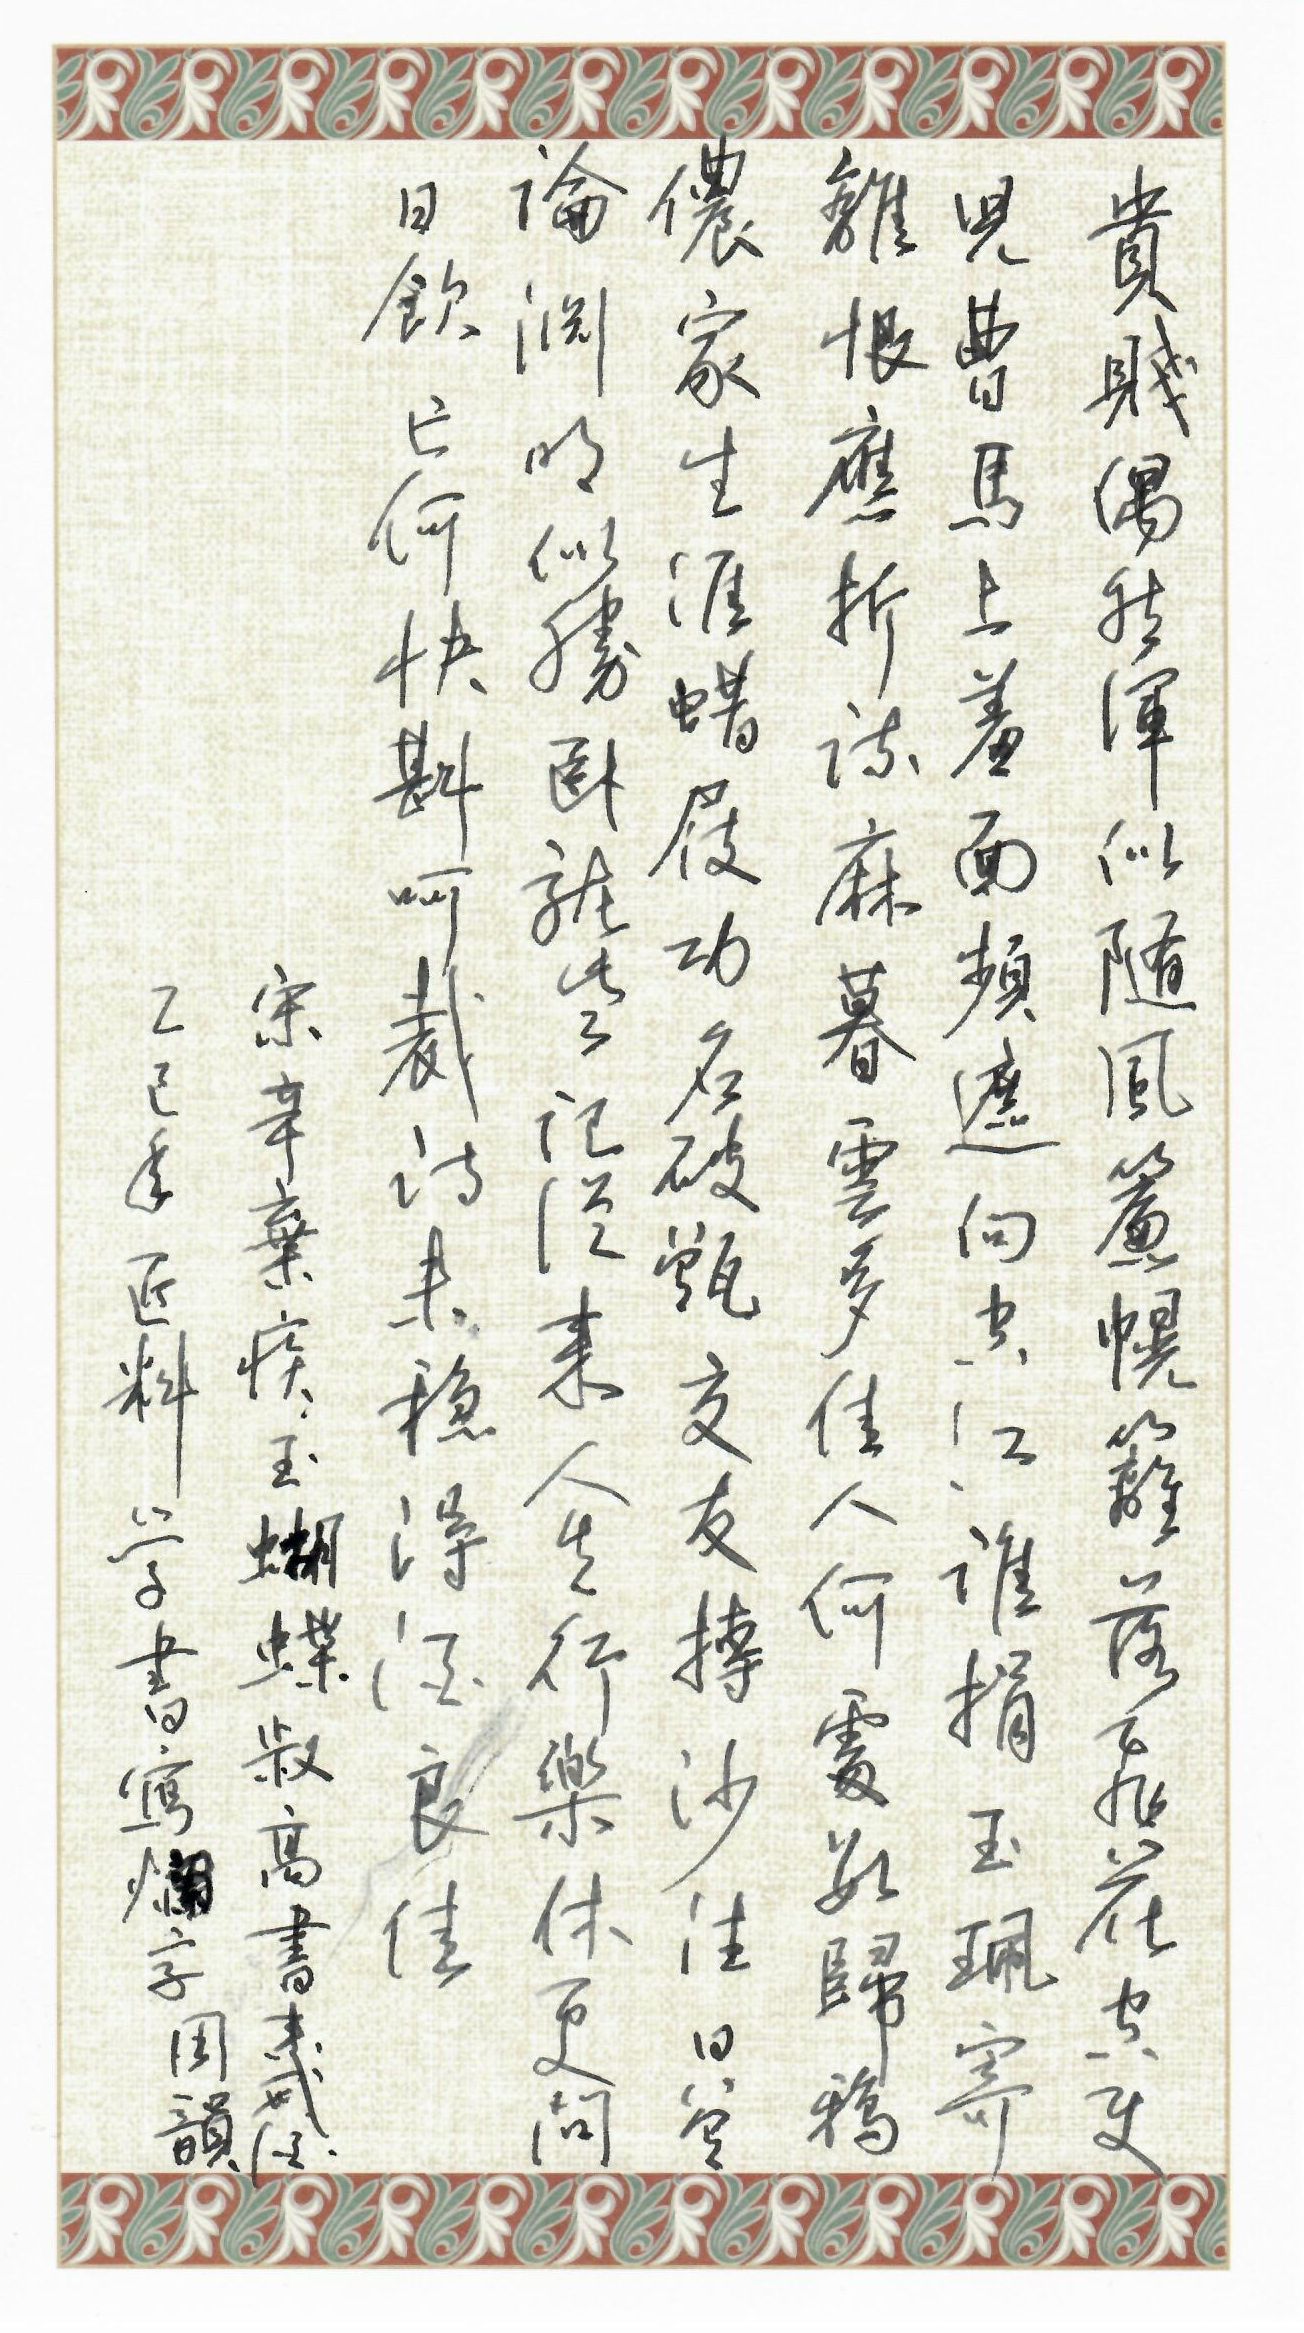 貴賤偶然渾似随風簾幌籬落飛花空使
児曹馬上羞面頻遮向空江誰捐玉珮寄
離恨應折疎麻暮雲多佳人何處數歸鴉
儂家生涯蠟屐功名破甑交友摶沙往日曾
論淵明似勝臥龍些記從来人生行樂休更問
日飲亡何快斟呵裁詩未穩得酒良佳
宋辛棄疾玉蝴蝶叔高書来戒酒
乙巳年 匠料 学書寫爛字 用韻